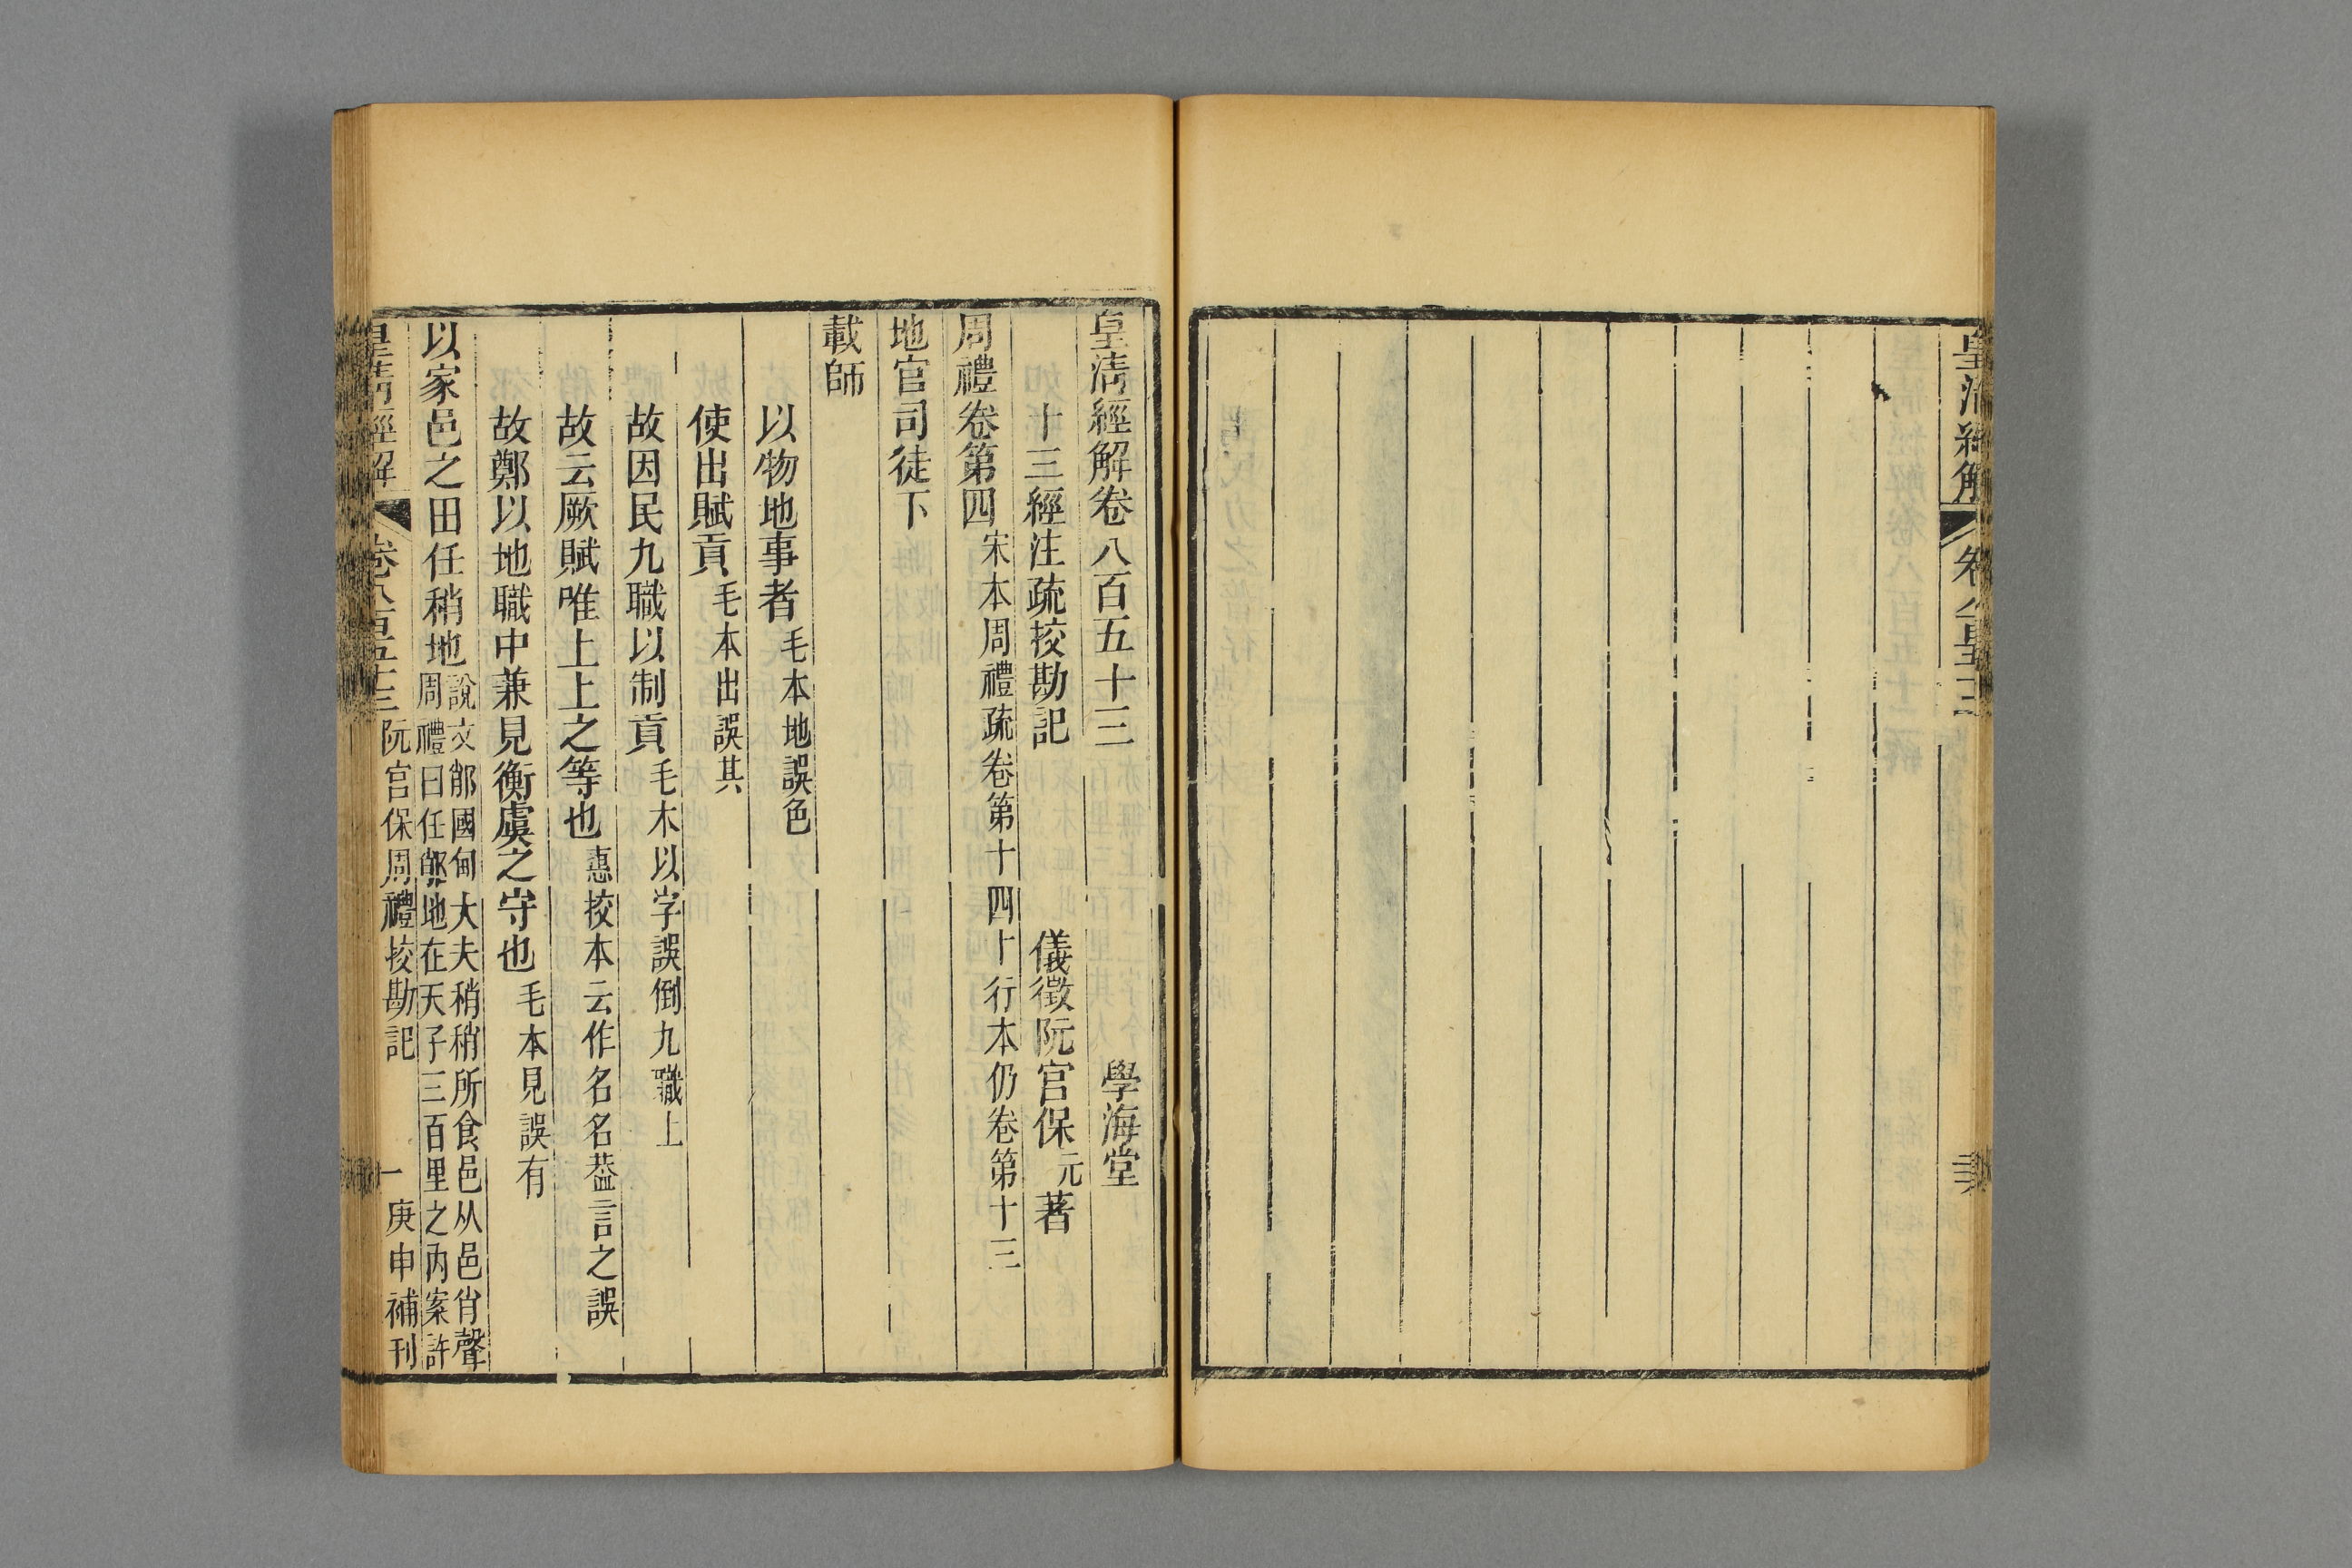 皇清經解
皇清經解卷八百五十三
學海堂
十三經注疏挍勘記
儀徵阮宫保元著
周禮卷第四宋本周禮疏卷第十四十行本仍卷第十三
地官司徒下
載師
以物地事者毛本地誤色
使出賦貢毛本出誤其
故因民九職以制貢毛本以字誤倒九職上
故云厥賦唯上上之等也惠挍本云作名名葢言之誤
故鄭以地職中兼見衡虞之守也毛本見誤有
以家邑之田任稍地說文鄁國甸大夫稍稍所食邑从邑肖聲
周禮曰任鄁地在天子三百里之內案許
皇清經解 卷八百五十三 阮宫保周禮挍勘記 一 庚申補刊